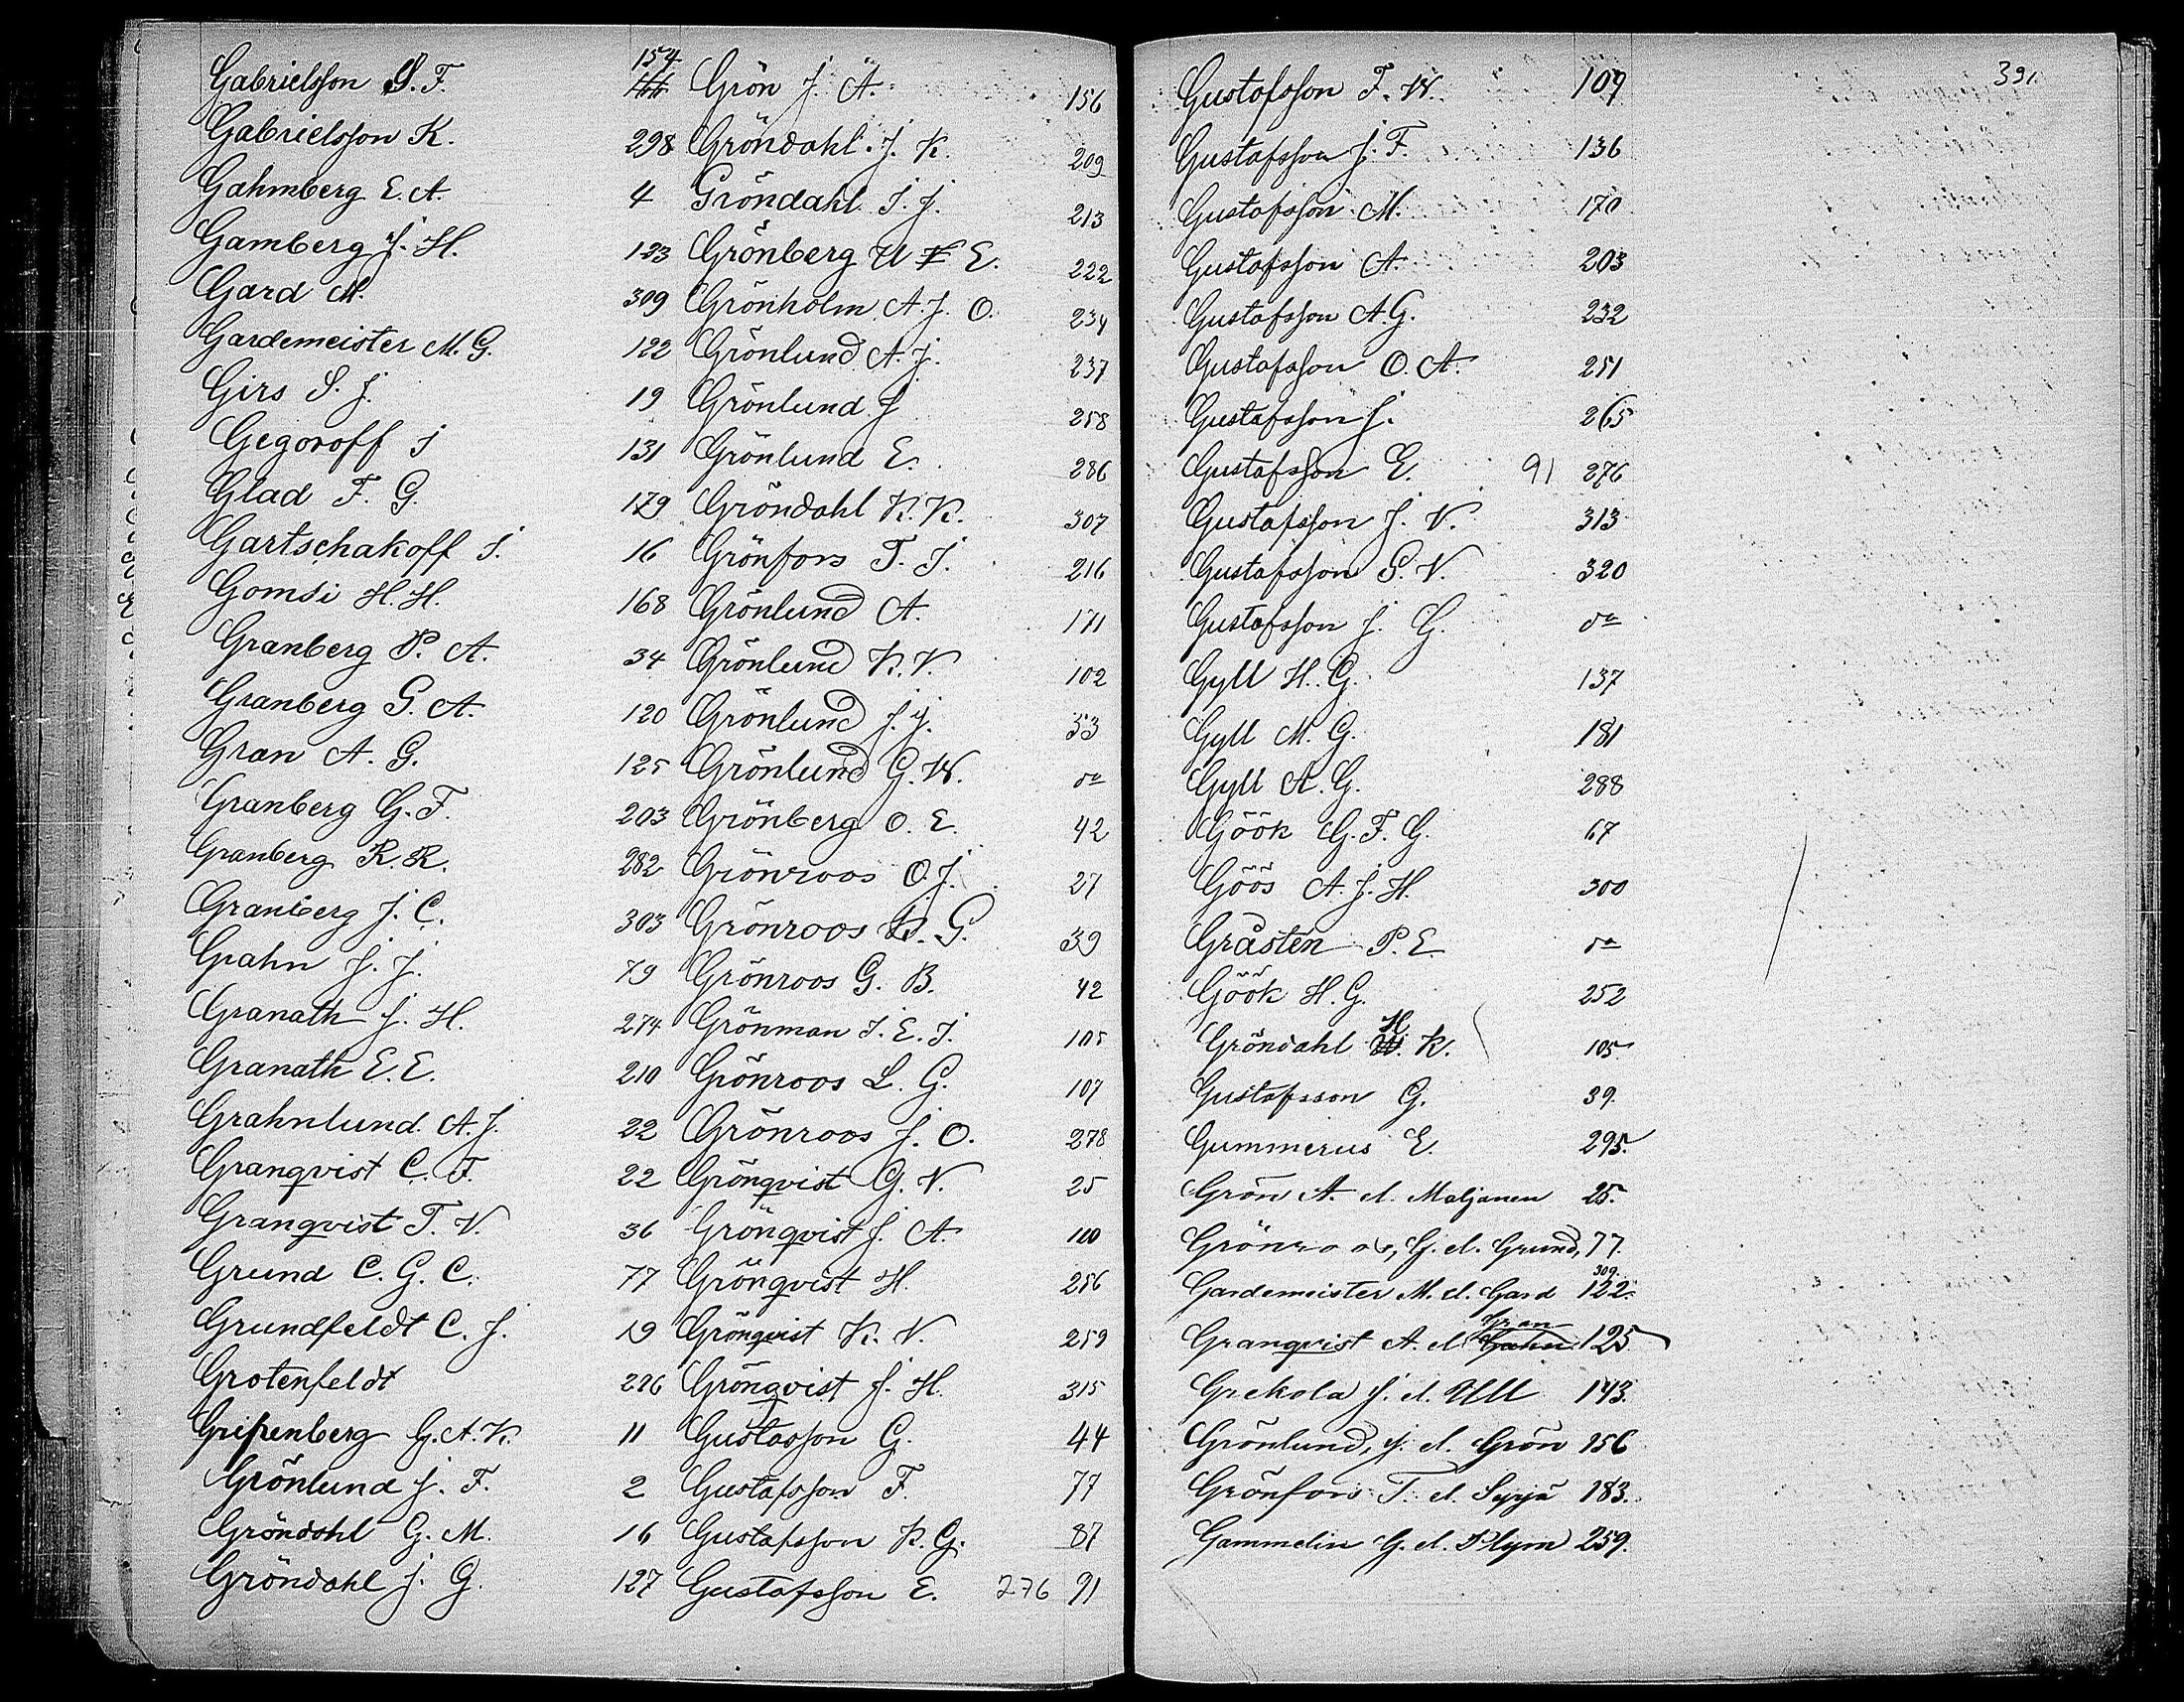 Gabrielsson S. F. 154
Gabrielsson K. 298
Gahmberg E. A. 4
Gamberg J. H. 123
Gard M. 309
Gardemeister M. G. 122
Girs S. J. 19
Gegoroff J 131
Glad F. G. 179
Gartschakoff J. 16
Gomsi H. H. 168
Granberg P. A. 34
Granberg G. A. 120
Gran A. G. 125
Granberg G. F. 203
Granberg R. R. 282
Granberg J. C. 303
Grahn J. J. 79
Granath J. H. 274
Granath E. E. 210
Grahnlund A. J. 22
Granqvist C. F. 22
Granqvist T. V. 36
Grund C. G. C. 77
Grundfeldt C. J. 19
Grotenfeldt 276
Gripenberg G. A. K. 11
Grönlund J. F. 2
Gröndahl G. M. 16
Gröndahl J. G. 127
Grön J. A. 156
Gröndahl J. K. 209
Gröndahl J. J. 213
Grönberg U F E. 222
Grönholm A. J. O. 234
Grönlund A. J. 237
Grönlund J 258
Grönlund E. 286
Gröndahl K. K. 307
Grönfors T. J. 216
Grönlund A. 171
Grönlund K. V. 102
Grönlund J. J. 53
Grönlund G. W. da
Grönberg O. E. 42
Grönroos O. J. 27
Grönroos K. G. 39
Grönroos G. B. 42
Grönman J. E. J. 105
Grönroos L. G. 107
Grönroos J. O. 278
Grönqvist G. V. 25
Grönqvist J. A. 110
Grönqvist H. 256
Grönqvist K. V. 259
Grönqvist J. H. 315
Gustafsson G. 44
Gustafsson F. 77
Gustafsson K. G. 87
Gustafsson E. 276 91
391
Gustafsson F. W. 109
Gustafsson J. F. 136
Gustafsson M. 170
Gustafsson A. 203
Gustafsson A. G. 232
Gustafsson O. A. 251
Gustafsson J. 265
Gustafsson E. 91 276
Gustafsson J. V. 313
Gustafsson S. V. 320
Gustafsson J. G. da
Gyll H. G. 137
Gyll M. G. 181
Gyll A. G. 288
Göök G. F. G. 67
Göös A. J. H. 300
Gråsten P. E. da
Göök H. G. 252
Gröndahl H. K. 105
Gustafsson G. 39.
Gummerus E. 295.
Grön A. el. Maljanen 25.
Grönroos, G. el. Grund, 77.
Gardemeister M. el. Gard 309. 122.
Granqvist A. el. Gran 125
Grekola J. el. Ull 143.
Grönlund, J. el. Grön 156
Grönfors T. el. Syrjä 183.
Gammelin G. el. Plym 259.